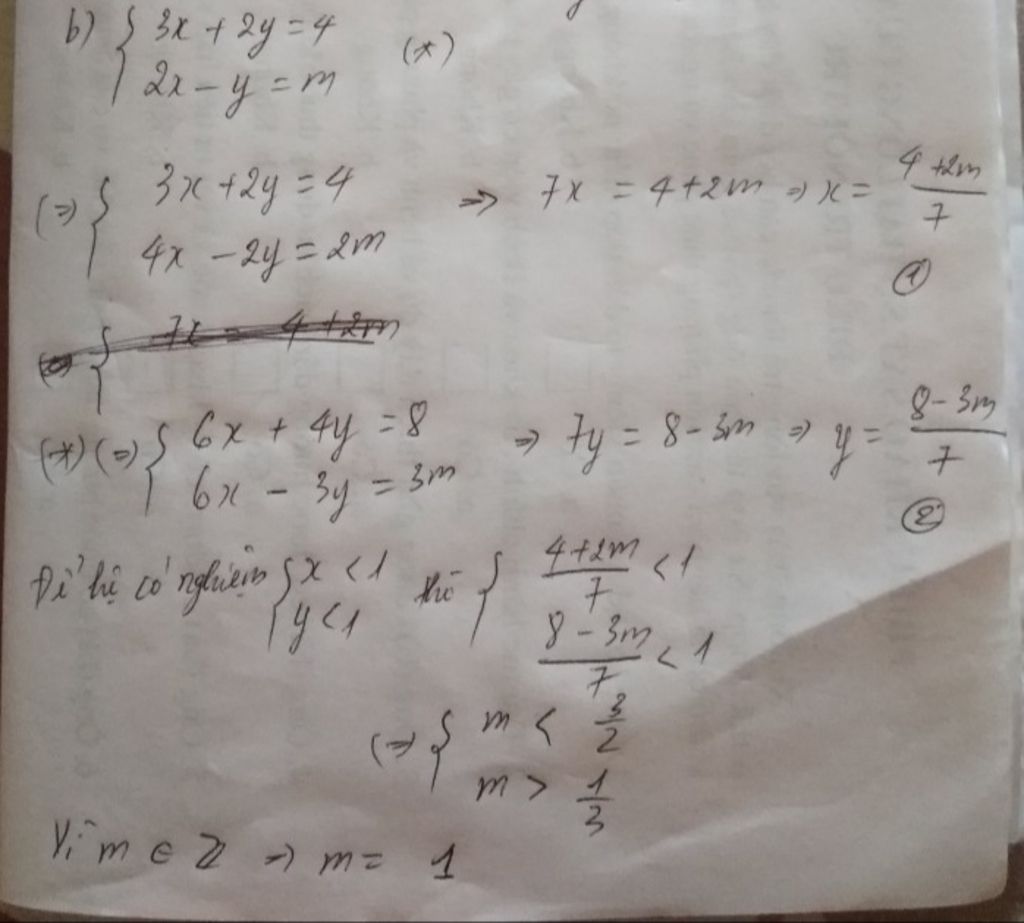 b) { 3x + 2y = 4
2x - y = m (*)
(=> { 3x + 2y = 4
4x - 2y = 2m => 7x = 4 + 2m => x = (4 + 2m)/7 ①
{ 7x = 4 + 2m
(*) (=> { 6x + 4y = 8
6x - 3y = 3m => 7y = 8 - 3m => y = (8 - 3m)/7 ②
Để hệ có nghiệm { x < 1
y < 1 thì { (4 + 2m)/7 < 1
(8 - 3m)/7 < 1
(=> { m < 3/2
m > 1/3
Vì m ∈ Z => m = 1